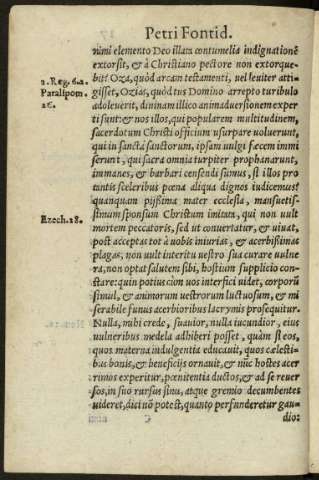 Petri Fontid.
nimi elemento Deo illata contumelia indignationē
extorsit, & à Christiano pectore non extorque-
2. Reg. 6. 2. bit? Oza, quòd arcam testamenti, vel leuiter atti-
Paralipom. gisset, Ozias, quòd tus Domino arrepto turibulo
26. adoleuerit, diuinam illico animaduersionem exper
ti sunt: & nos illos, qui popularem multitudinem,
sacerdotum Christi officium vsurpare voluerunt,
qui in sancta sanctorum, ipsam vulgi fæcem immi
serunt, qui sacra omnia turpiter prophanarunt,
immanes, & barbari censendi sumus, si illos pro
tantis sceleribus pœna aliqua dignos iudicemus?
quanquam pijssima mater ecclesia, mansuetis-
Ezech. 18. simum sponsum Christum imitata, qui non vult
mortem peccatoris, sed vt conuertatur, & viuat,
post acceptas tot à vobis iniurias, & acerbissimas
plagas, non vult interitu vestro sua curare vulne
ra, non optat salutem sibi, hostium supplicio con-
stare: quin potius cùm vos interfici videt, corporū
simul, & animorum vestrorum luctuosum, & mi
serabile funus acerbioribus lacrymis prosequitur.
Nulla, mihi crede, suauior, nulla iucundior, eius
vulneribus medela adhiberi posset, quàm si eos,
quos materna indulgentia educauit, quos cælesti-
bus bonis, & beneficijs ornauit, & nūc hostes acer
rimos experitur, pœnitentia ductos, & ad se reuer
sos, in suo rursus sinu, atque gremio decumbentes
videret, dici nō potest, quanto perfunderetur gau-
dio: